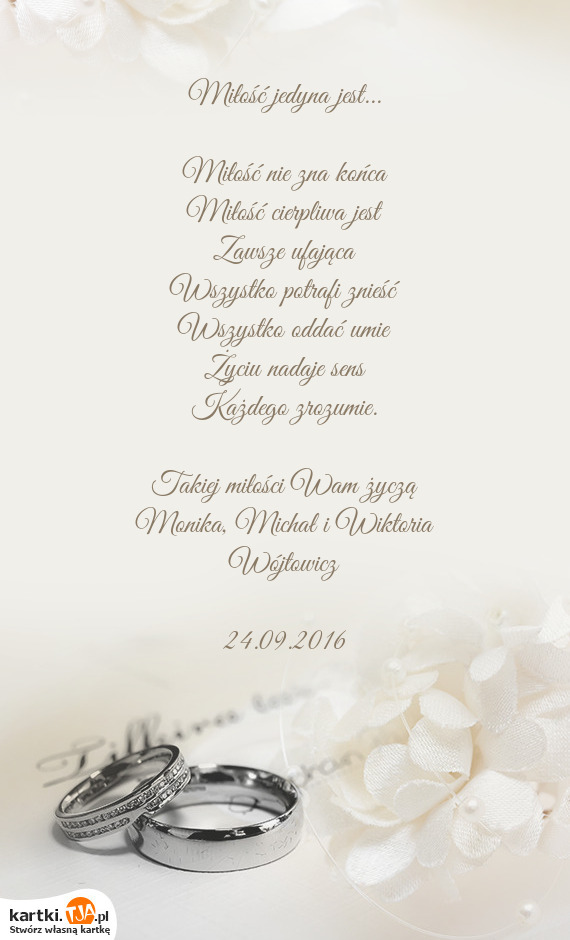 Miłość jedyna jest...
Miłość nie zna końca
Miłość cierpliwa jest
Zawsze ufająca
Wszystko potrafi znieść
Wszystko oddać umie
Życiu nadaje sens
Każdego zrozumie.
Takiej miłości Wam życzą
Monika, Michał i Wiktoria
Wójtowicz
24.09.2016
kartki.TJA.pl
Stwórz własną kartkę